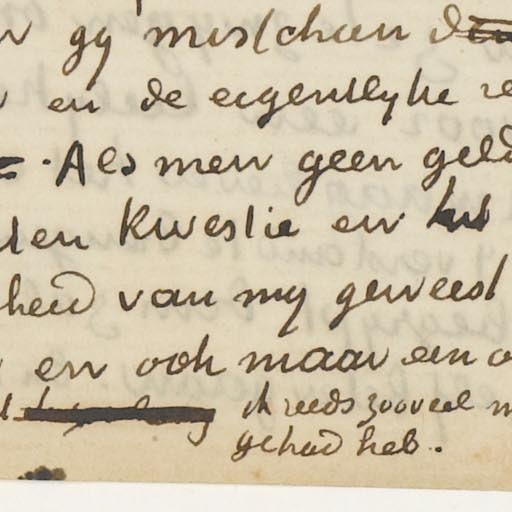 gy misschien
en de eigentlyke re
. Als men geen geld
ten kwestie en het
heid van my geweest
en ook maar een o
ik reeds zooveel m
gehad heb.